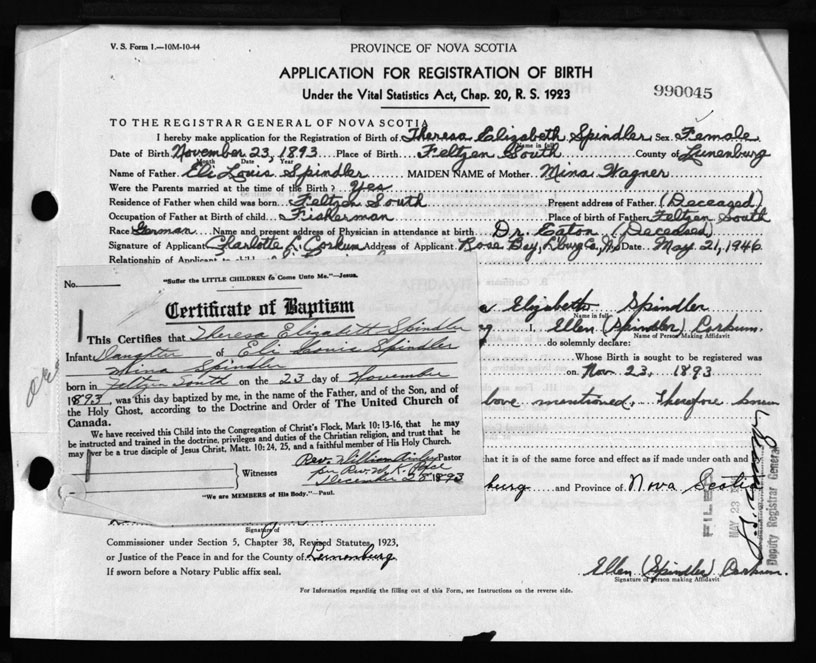 V. S. Form 1.—10M-10-44
PROVINCE OF NOVA SCOTIA
APPLICATION FOR REGISTRATION OF BIRTH
Under the Vital Statistics Act, Chap. 20, R. S. 1923
990045
TO THE REGISTRAR GENERAL OF NOVA SCOTIA
I hereby make application for the Registration of Birth of Theresa Elizabeth Spindler Sex Female
Name in full
Date of Birth November 23, 1893 Place of Birth Feltzen South County of Lunenburg
Month Date, Year
Name of Father Eli Louis Spindler MAIDEN NAME of Mother Mina Wagner
Were the Parents married at the time of the Birth? Yes
Residence of Father when child was born Feltzen South Present address of Father (Deceased)
Occupation of Father at Birth of child Fisherman Place of birth of Father Feltzen South
Race German Name and present address of Physician in attendance at birth Dr. Eaton (Deceased)
Signature of Applicant Charlotte L. Corkum Address of Applicant Rose Bay, L'burg Co., NS Date May 21, 1946
Relationship of Applicant to child
No.
"Suffer the LITTLE CHILDREN to Come Unto Me."—Jesus.
Certificate of Baptism
This Certifies that Theresa Elizabeth Spindler
Infant Daughter of Eli Louis Spindler
Mina Spindler
born in Feltzen South on the 23 day of November
1893, was this day baptized by me, in the name of the Father, and of the Son, and of
the Holy Ghost, according to the Doctrine and Order of The United Church of
Canada.
We have received this Child into the Congregation of Christ's Flock, Mark 10: 13-16, that he may
be instructed and trained in the doctrine, privileges and duties of the Christian religion, and trust that he
may ever be a true disciple of Jesus Christ, Matt. 10: 24, 25, and a faithful member of His Holy Church.
Rev. William Pastor
Witnesses per Rev. W. K.
December 25 1893
"We are MEMBERS of His Body."—Paul.
Elizabeth Spindler
Name in full
I, Ellen (Spindler) Corkum
Name of Person Making Affidavit
do solemnly declare:
Whose Birth is sought to be registered was
on Nov 23, 1893
above mentioned, Therefore
that it is of the same force and effect as if made under oath and
burg and Province of Nova Scotia
FILED
MAY 23
Deputy Registrar General
Signature of
Commissioner under Section 5, Chapter 38, Revised Statutes, 1923,
or Justice of the Peace in and for the County of Lunenburg
If sworn before a Notary Public affix seal.
Ellen (Spindler) Corkum.
Signature of Person making Affidavit
For Information regarding the filling out of this Form, see Instructions on the reverse side.